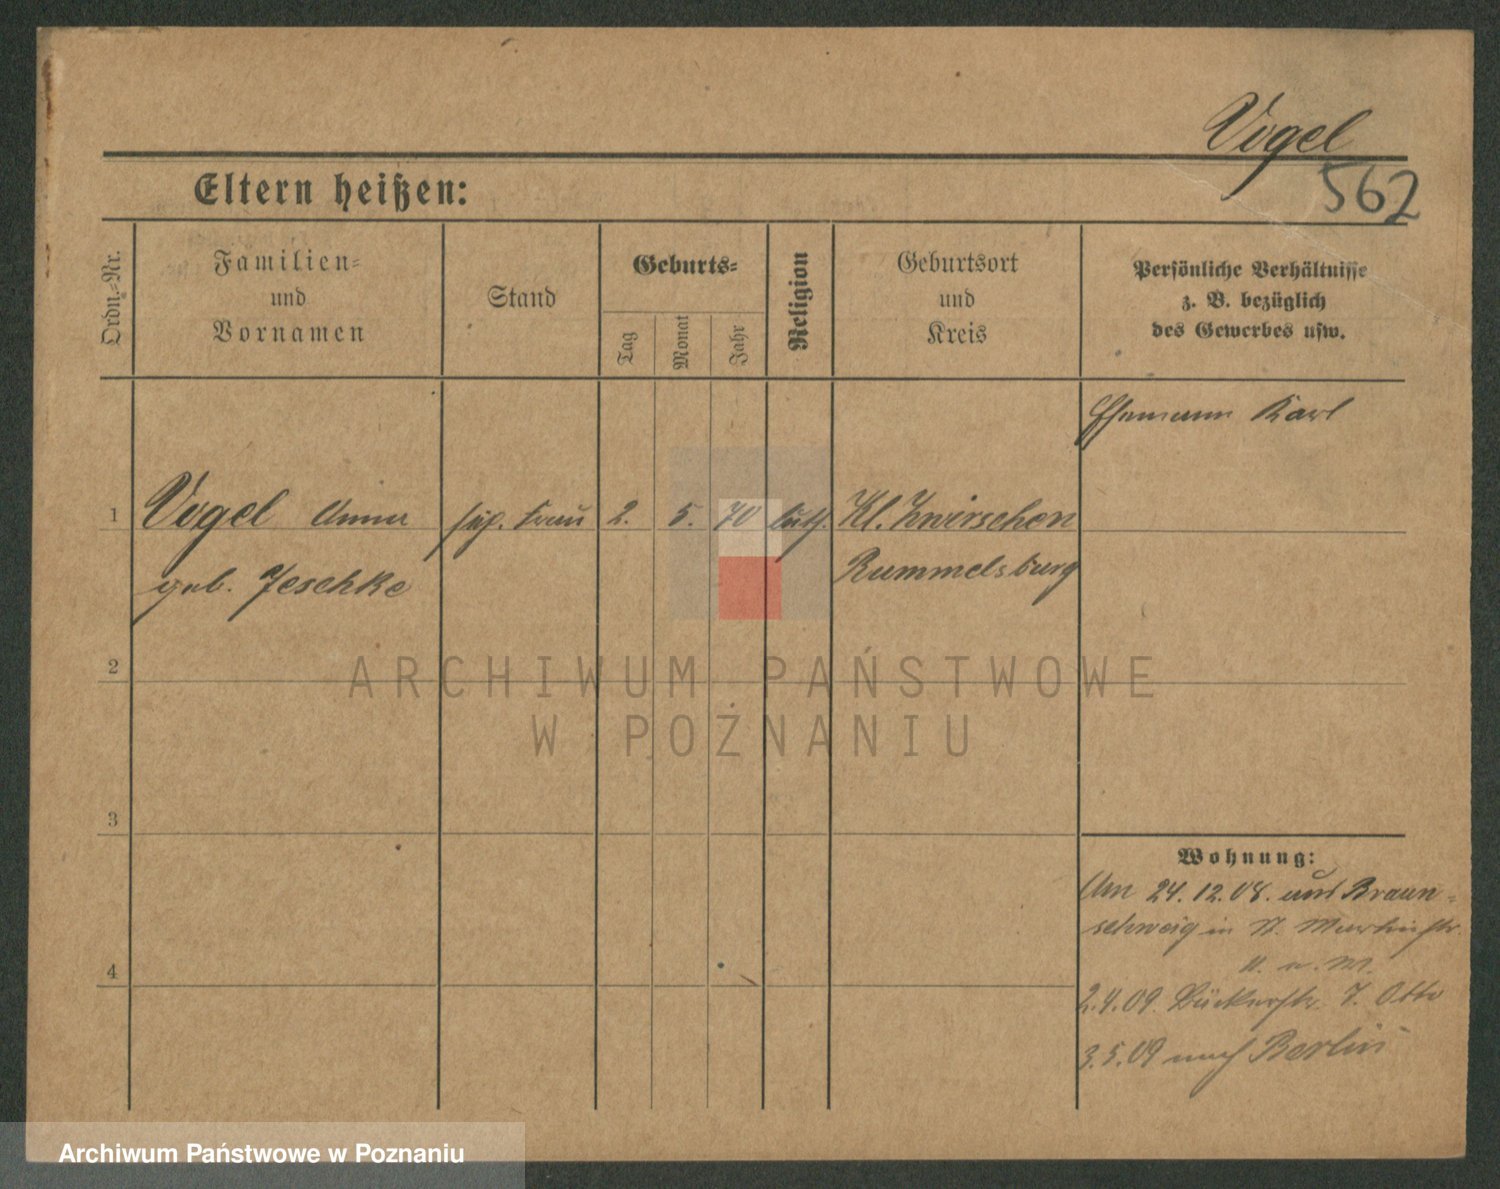 Vogel
562
Eltern heißen:
Ordn.-Nr.
Familien-
und
Vornamen
Stand
Geburts-
Tag
Monat
Jahr
Religion
Geburtsort
und
Kreis
Persönliche Verhältnisse
z. B. bezüglich
des Gewerbes usw.
Ehemann Karl
1
Vogel Anna
geb. Jeschke
Frau
2.
5.
70
luth.
Kl. Zwirschen
Rummelsburg
2
ARCHIWUM PAŃSTWOWE
W POZNANIU
3
Wohnung:
Am 24.12.08. aus Braun-
schweig in St. Martinstr.
4
2.4.09. Bäckerstr. 7. Otto
3.5.09 nach Berlin
Archiwum Państwowe w Poznaniu